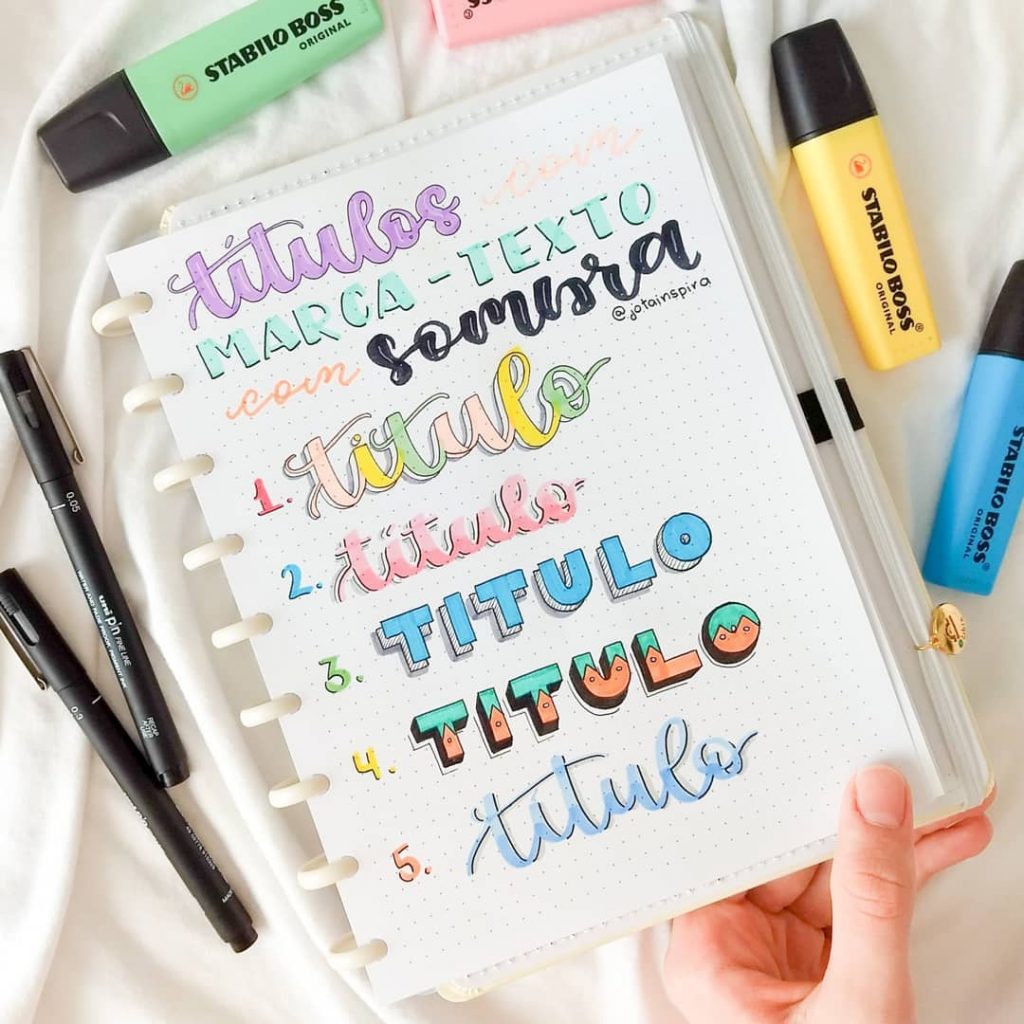 STABILO BOSS
ORIGINAL
títulos com
MARCA-TEXTO
com sombra
@jotainspira
1. titulo
2. título
3. TITULO
4. TITULO
5. titulo
STABILO BOSS
ORIGINAL
STABILO BOSS
ORIGINAL
0.05
uni pin FINE LINE
0.3